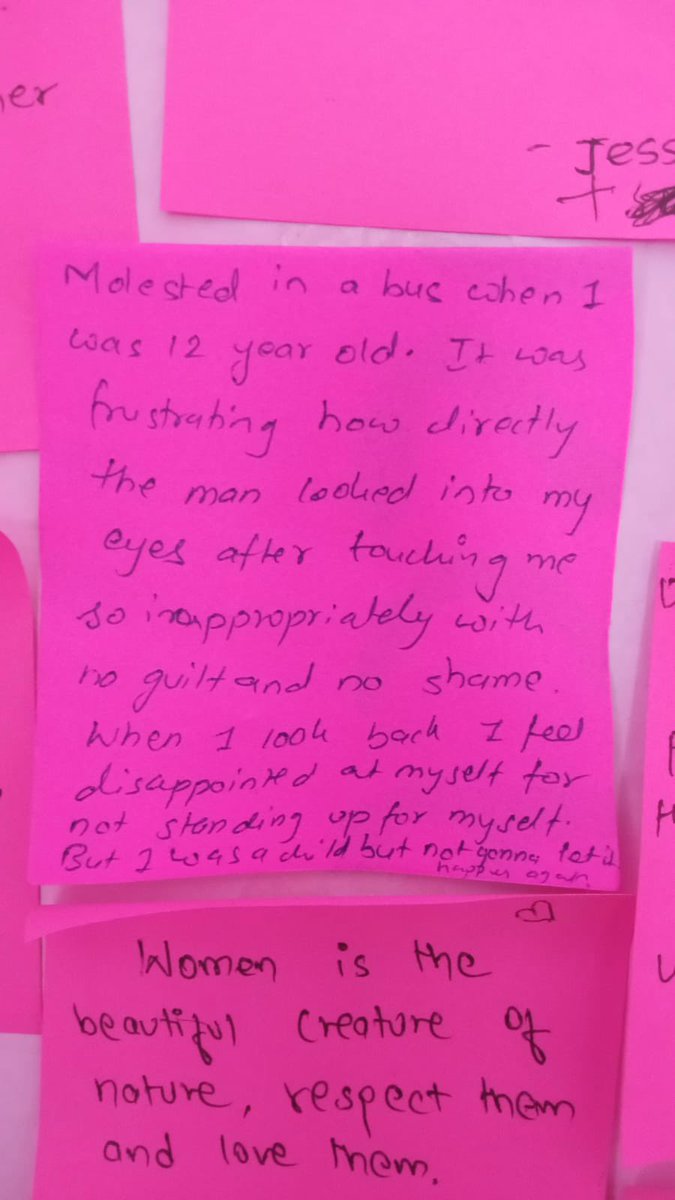 er
- Jess
+
Molested in a bus when I
was 12 year old. It was
frustrating how directly
the man looked into my
eyes after touching me
so inappropriately with
no guilt and no shame.
When I look back I feel
disappointed at myself for
not standing up for myself.
But I was a child but not gonna let it
happen again.
Women is the
beautiful creature of
nature, respect them
and love them.